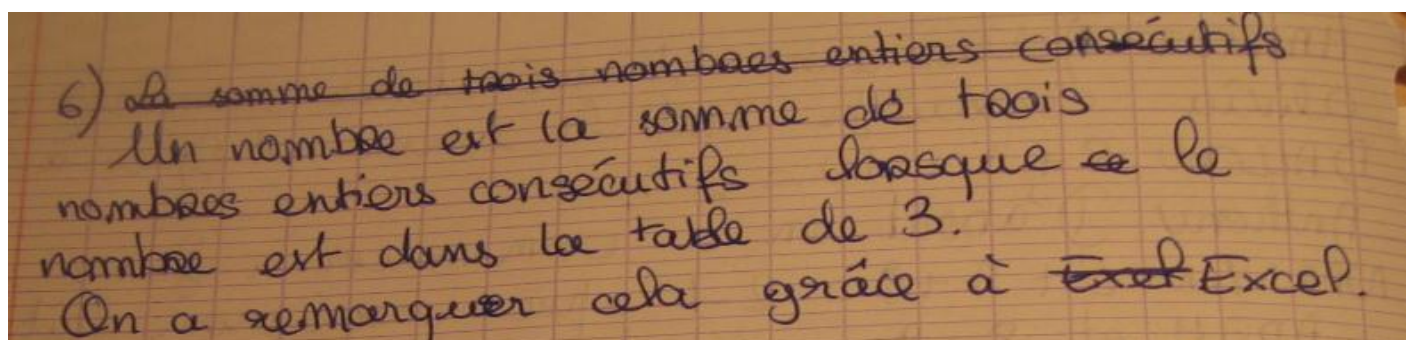 6) La somme de trois nombres entiers consécutifs
Un nombre est la somme de trois
nombres entiers consécutifs lorsque ce le
nombre est dans la table de 3.
On a remarquer cela grâce à Exel Excel.